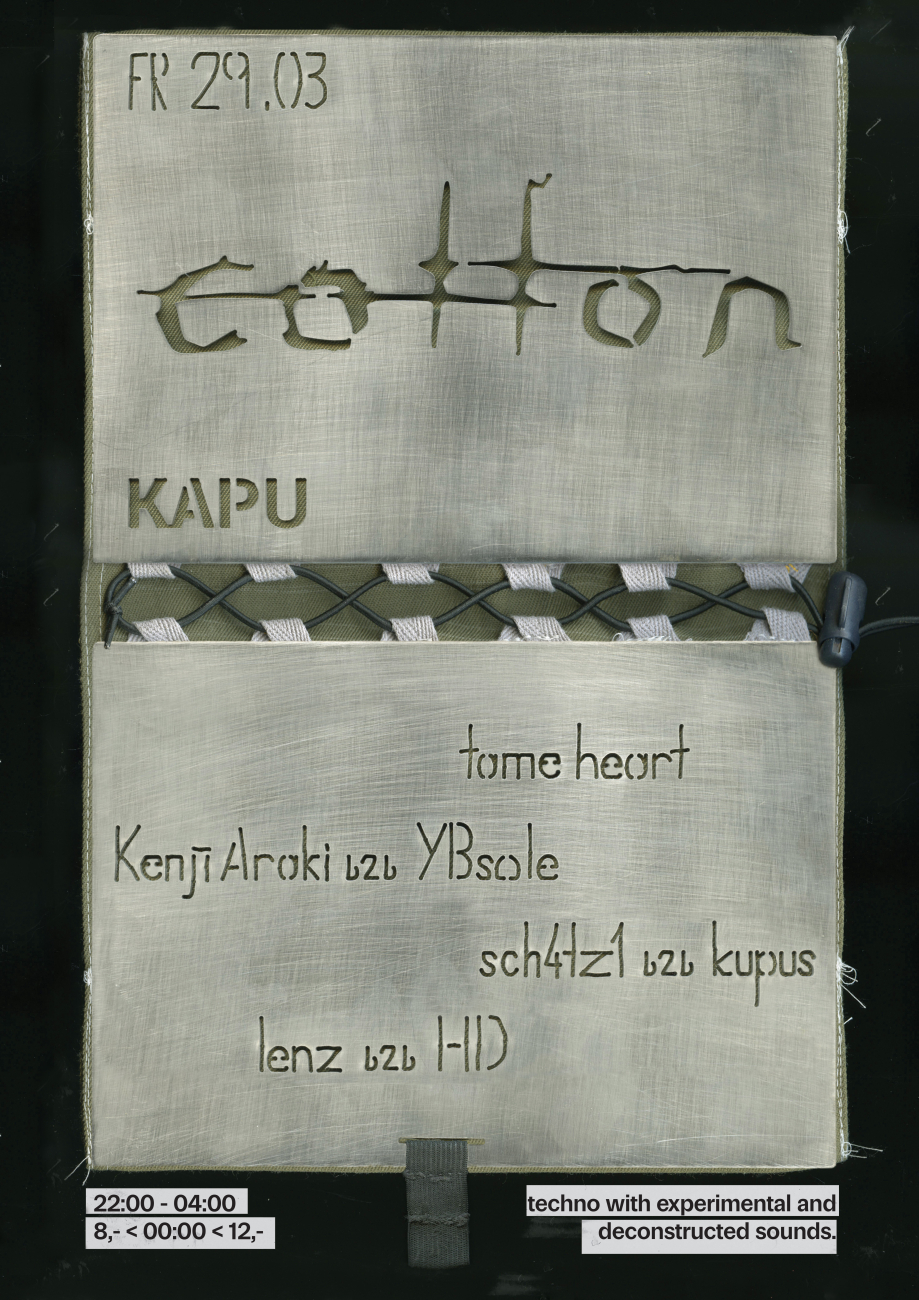 FR 29.03
cotton
KAPU
tame heart
Kenji Araki b2b YBsole
sch4tz1 b2b kupus
lenz b2b HD
22:00 - 04:00
8,- < 00:00 < 12,-
techno with experimental and
deconstructed sounds.